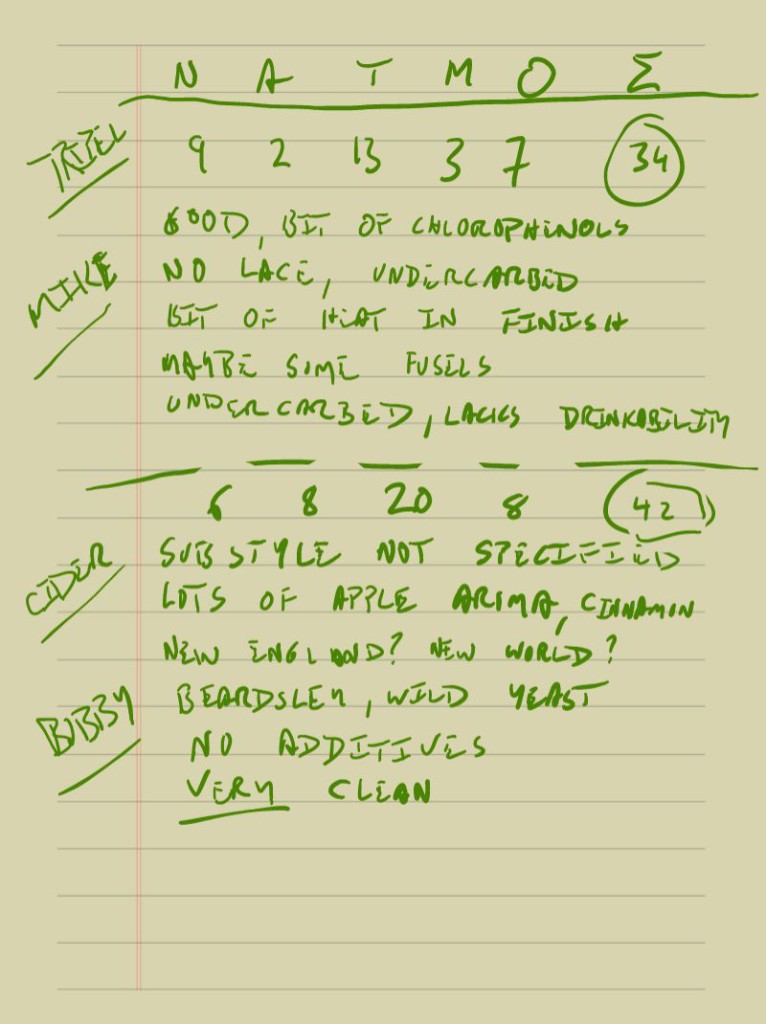 N A T M O Σ
TRIPEL 9 2 13 3 7 34
GOOD, BIT OF CHLOROPHENOLS
MIKE NO LACE, UNDERCARBED
BIT OF HEAT IN FINISH
MAYBE SOME FUSELS
UNDERCARBED, LACKS DRINKABILITY
6 8 20 8 42
CIDER SUBSTYLE NOT SPECIFIED
LOTS OF APPLE AROMA, CINNAMON
NEW ENGLAND? NEW WORLD?
BUBBY BEARDSLEY, WILD YEAST
NO ADDITIVES
VERY CLEAN